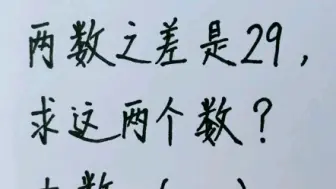 两数之差是29，
求这两个数？